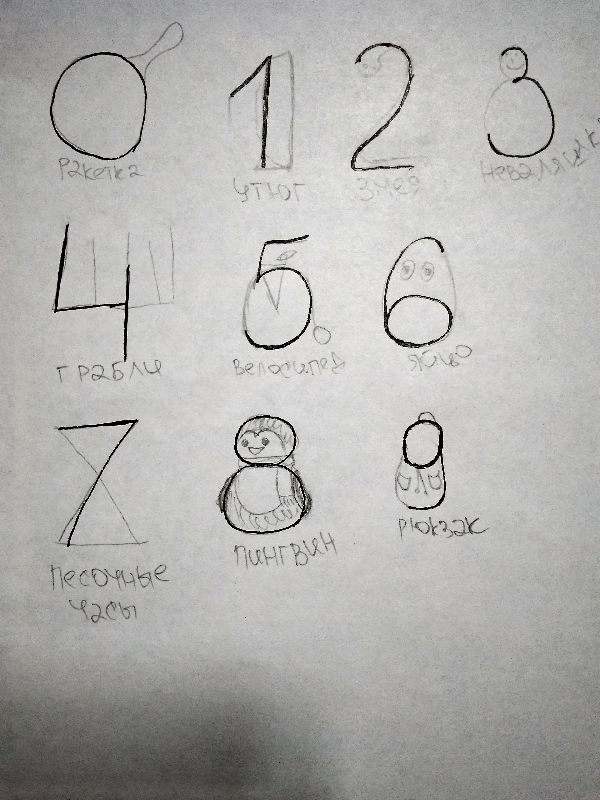 0 1 2 3
Ракетка Утюг Змея Неваляшка
4 5 6
Грабли Велосипед Яйцо
7 8 9
Песочные Пингвин Рюкзак
часы